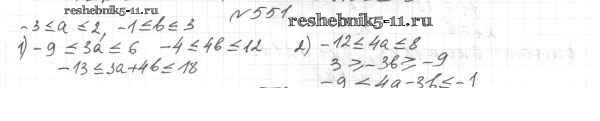 reshebnik5-11.ru
№551
-3≤a≤2, -1≤b≤3
reshebnik5-11.ru
1) -9≤3a≤6 -4≤4b≤12
-13≤3a+4b≤18
2) -12≤4a≤8
3≥-3b≥-9
-9≤4a-3b≤-1